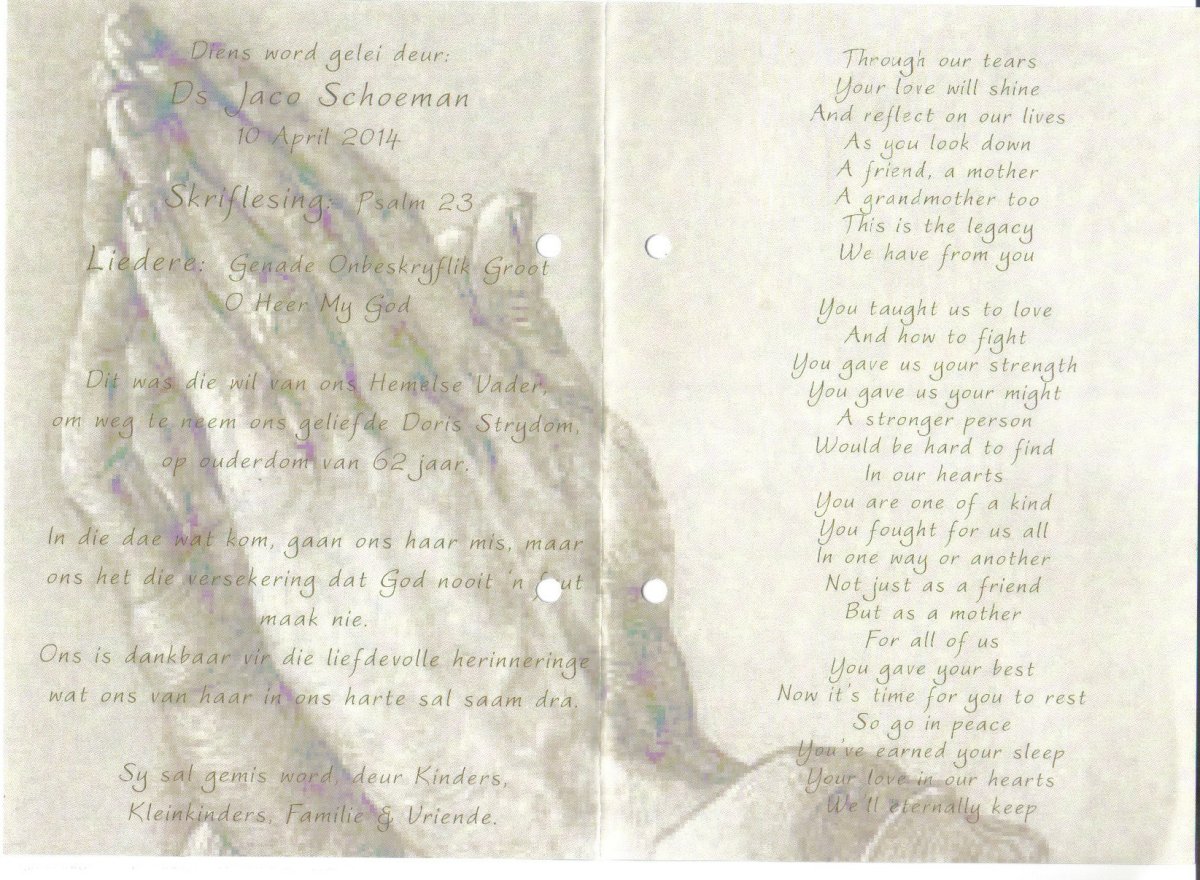 Diens word gelei deur:
Ds Jaco Schoeman
10 April 2014
Skriflesing: Psalm 23
Liedere: Genade Onbeskryflik Groot
O Heer My God
Dit was die wil van ons Hemelse Vader,
om weg te neem ons geliefde Doris Strydom,
op ouderdom van 62 jaar.
In die dae wat kom, gaan ons haar mis, maar
ons het die versekering dat God nooit 'n
maak nie.
Ons is dankbaar vir die liefdevolle herinneringe
wat ons van haar in ons harte sal saam dra.
Sy sal gemis word, deur Kinders,
Kleinkinders, Familie & Vriende.
Through our tears
Your love will shine
And reflect on our lives
As you look down
A friend, a mother
A grandmother too
This is the legacy
We have from you
You taught us to love
And how to fight
You gave us your strength
You gave us your might
A stronger person
Would be hard to find
In our hearts
You are one of a kind
You fought for us all
In one way or another
Not just as a friend
But as a mother
For all of us
You gave your best
Now it's time for you to rest
So go in peace
You've earned your sleep
Your love in our hearts
We'll eternally keep